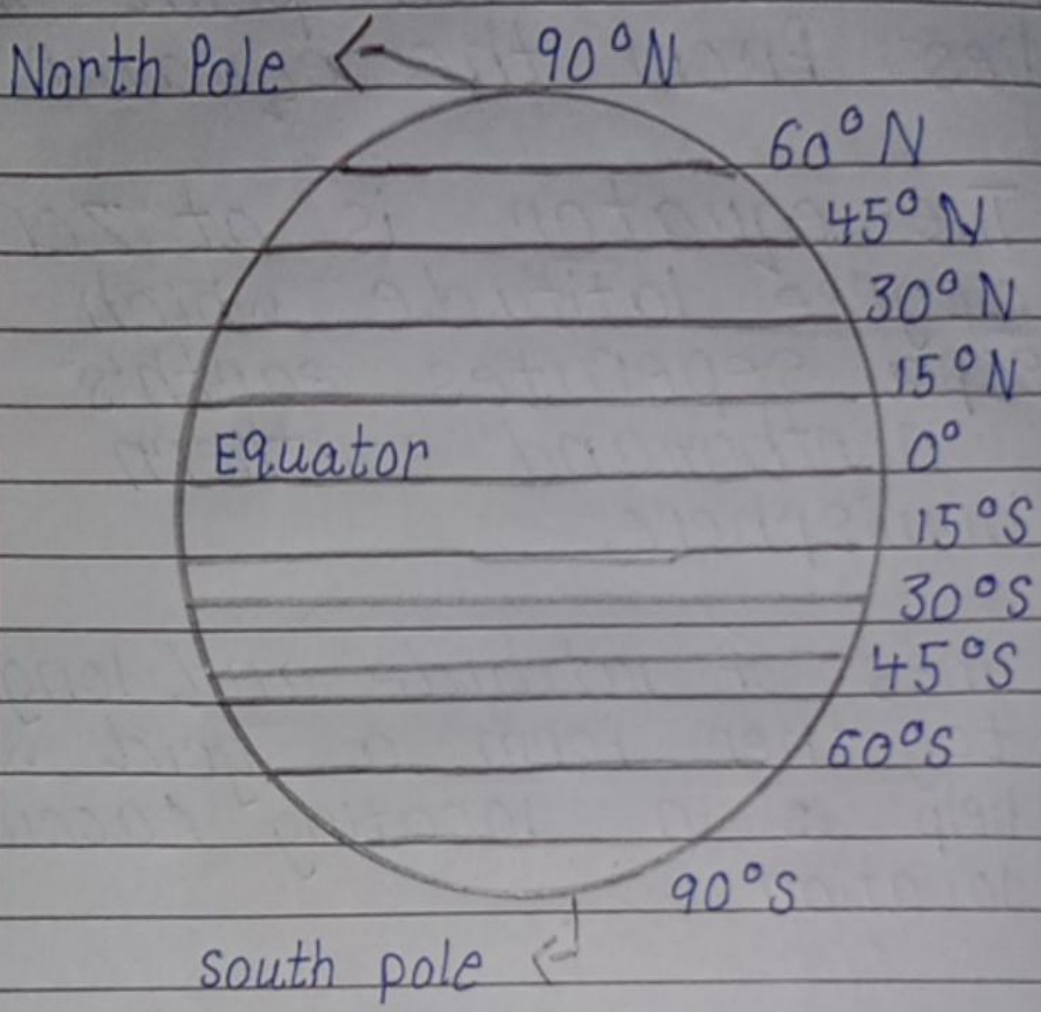 North Pole 90°N
60°N
45°N
30°N
15°N
Equator 0°
15°S
30°S
45°S
60°S
90°S
south pole